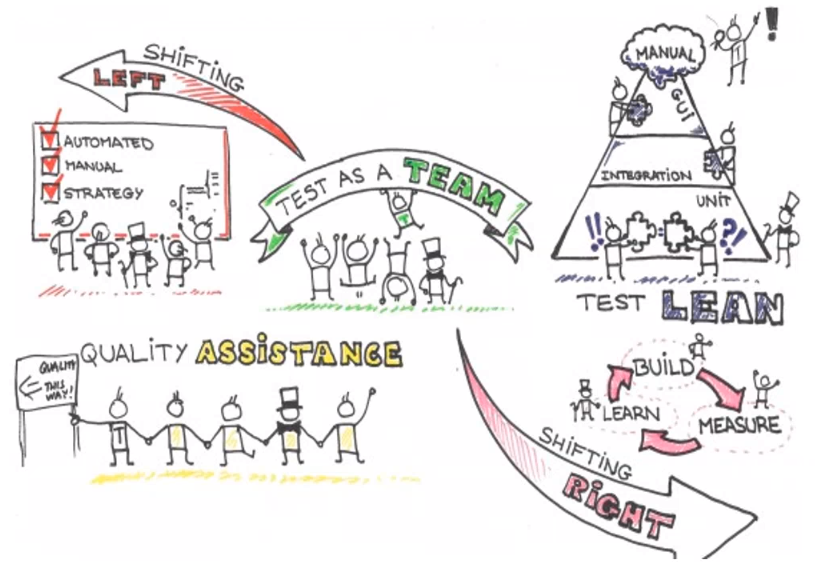 SHIFTING
LEFT
AUTOMATED
MANUAL
STRATEGY
TEST AS A TEAM
T
MANUAL
T
!
GUI
INTEGRATION
UNIT
!!
=
?!
TEST LEAN
QUALITY ASSISTANCE
QUALITY
THIS
WAY!
T
BUILD
MEASURE
LEARN
SHIFTING
RIGHT